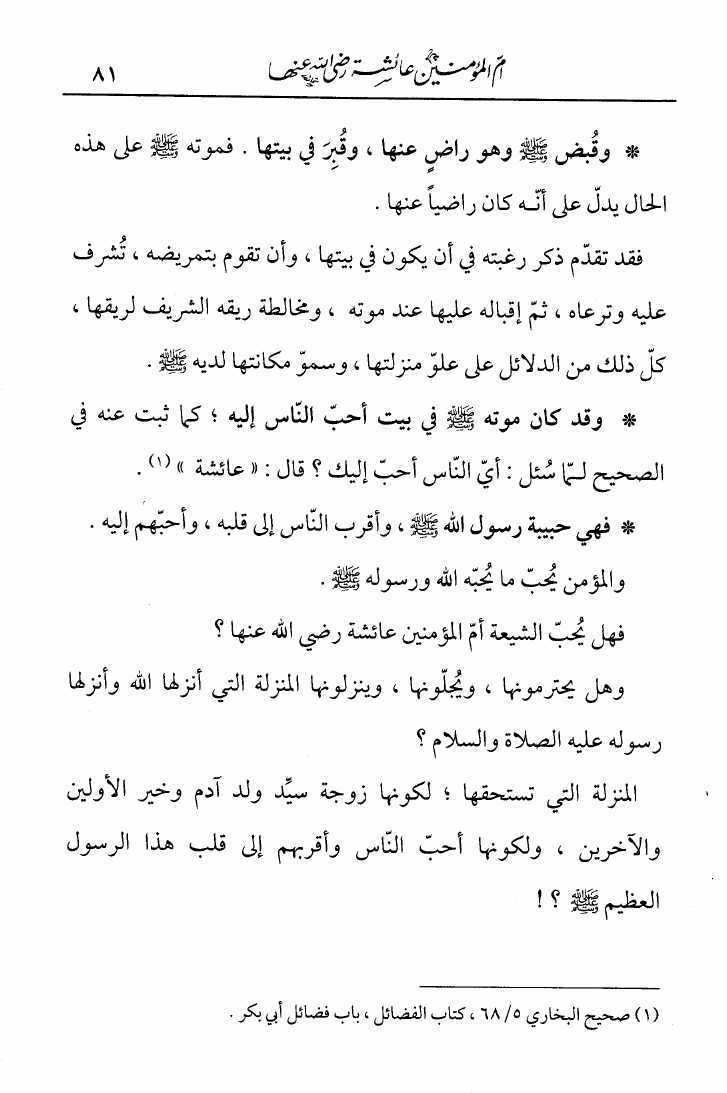 أمّ المؤمنين عائشة رضي الله عنها ٨١
* وقُبض ﷺ وهو راضٍ عنها ، وقُبِرَ في بيتها . فموته ﷺ على هذه
الحال يدلّ على أنّـه كان راضياً عنها .
فقد تقدّم ذكر رغبته في أن يكون في بيتها ، وأن تقوم بتمريضه ، تُشرف
عليه وترعاه ، ثمّ إقباله عليها عند موته ، ومخالطة ريقه الشريف لريقها ،
كلّ ذلك من الدلائل على علوّ منزلتها ، وسموّ مكانتها لديه ﷺ .
* وقد كان موته ﷺ في بيت أحبّ النّاس إليه ؛ كما ثبت عنه في
الصحيح لـمّا سُئل : أيّ النّاس أحبّ إليك ؟ قال : « عائشة » (١) .
* فهي حبيبة رسول الله ﷺ ، وأقرب النّاس إلى قلبه ، وأحبّهم إليه .
والمؤمن يُحبّ ما يُحبّه الله ورسوله ﷺ .
فهل يُحبّ الشيعة أمّ المؤمنين عائشة رضي الله عنها ؟
وهل يحترمونها ، ويُجلّونها ، وينزلونها المنزلة التي أنزلها الله وأنزلها
رسوله عليه الصلاة والسلام ؟
المنزلة التي تستحقها ؛ لكونها زوجة سيِّد ولد آدم وخير الأولين
والآخرين ، ولكونها أحبّ النّاس وأقربهم إلى قلب هذا الرسول
العظيم ﷺ ؟ !
(١) صحيح البخاري ٥/ ٦٨ ، كتاب الفضائل ، باب فضائل أبي بكر .